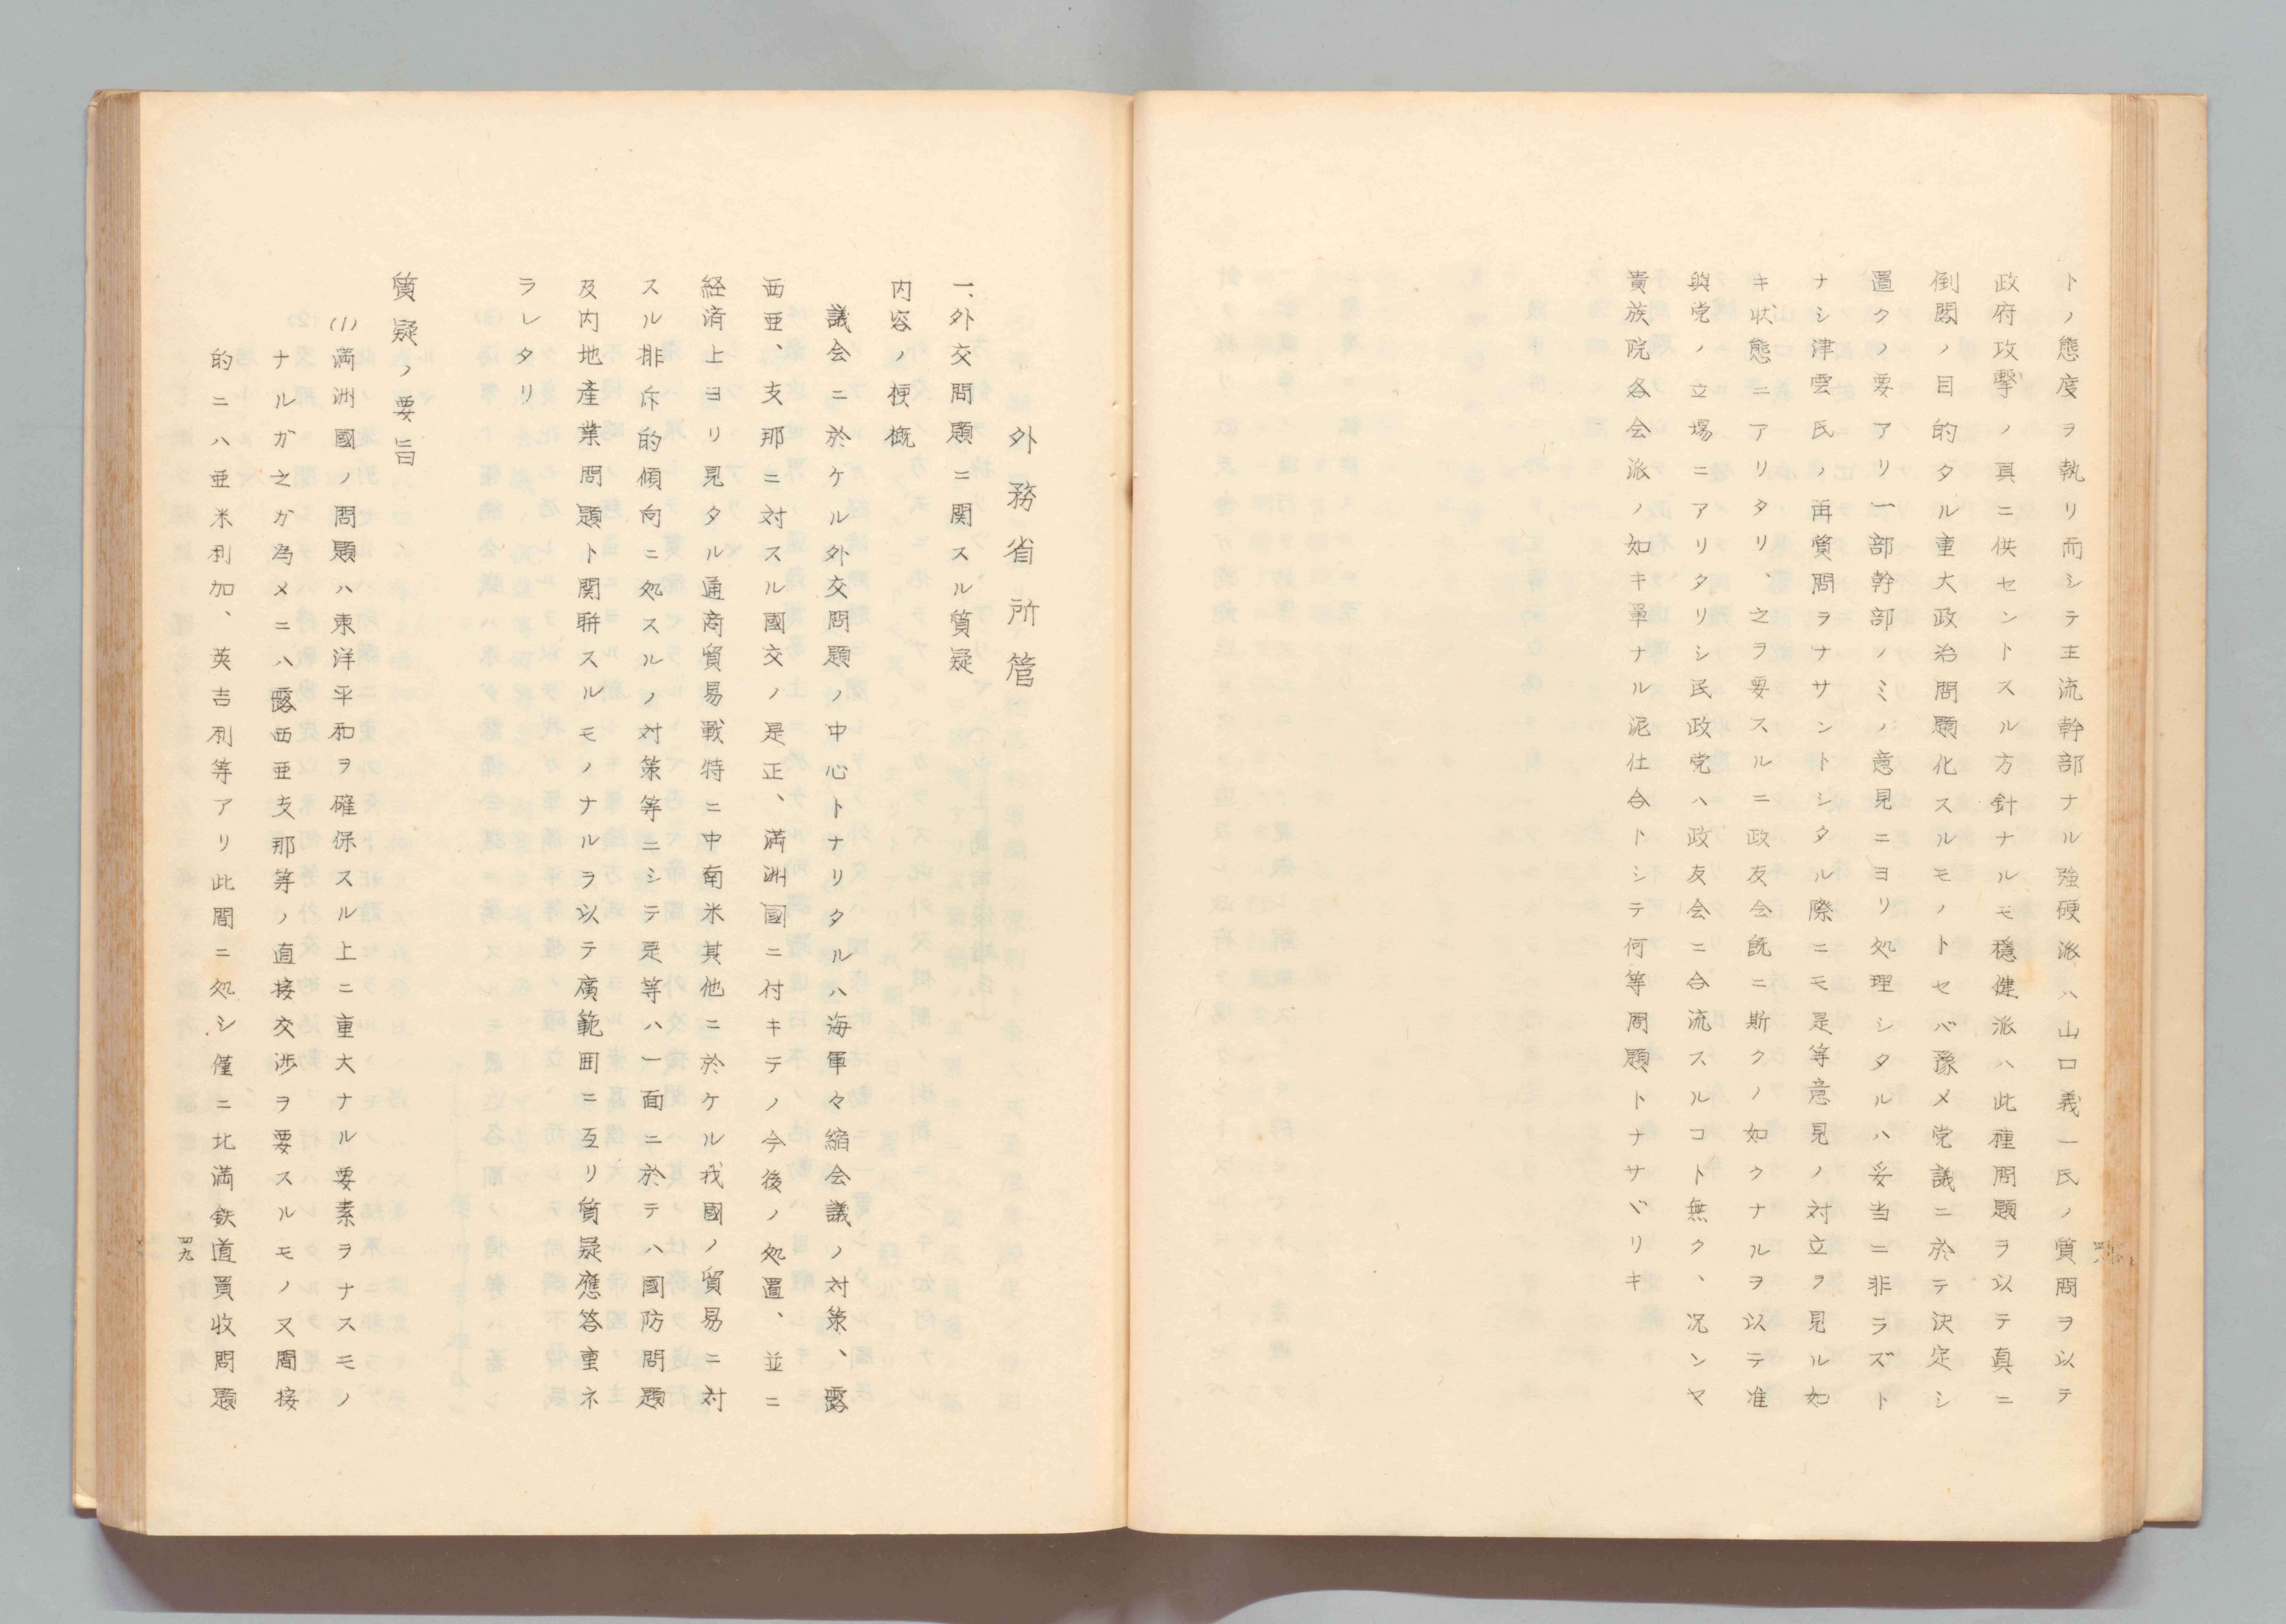 トノ態度ヲ執リ而シテ主流幹部ナル強硬派ハ山口義一氏ノ質問ヲ以テ
政府攻撃ノ具ニ供セントスル方針ナルモ穏健派ハ此種問題ヲ以テ真ニ
倒閣ノ目的タル重大政治問題化スルモノトセバ豫メ党議ニ於テ決定シ
置クノ要アリ一部幹部ノミノ意見ニヨリ処理シタルハ妥当ニ非ラズト
ナシ津雲氏ノ再質問ヲナサントシタル際ニモ是等意見ノ対立ヲ見ル如
キ状態ニアリタリ、之ヲ要スルニ政友会既ニ斯クノ如クナルヲ以テ准
與党ノ立場ニアリタリシ民政党ハ政友会ニ合流スルコト無ク、况ンヤ
貴族院各会派ノ如キ単ナル泥仕合トシテ何等問題トナサヾリキ
外務省所管
一、外交問題ニ関スル質疑
内容ノ梗概
議会ニ於ケル外交問題ノ中心トナリタルハ海軍々縮会議ノ対策、露
西亜、支那ニ対スル國交ノ是正、満洲國ニ付キテノ今後ノ処置、並ニ
経済上ヨリ見タル通商貿易戦特ニ中南米其他ニ於ケル我國ノ貿易ニ対
スル排斥的傾向ニ処スルノ対策等ニシテ是等ハ一面ニ於テハ國防問題
及内地産業問題ト関聯スルモノナルヲ以テ廣範囲ニ亙リ質疑應答重ネ
ラレタリ
質疑ノ要旨
(1)満洲國ノ問題ハ東洋平和ヲ確保スル上ニ重大ナル要素ヲナスモノ
ナルガ之ガ為メニハ露西亜支那等ノ直接交渉ヲ要スルモノ又間接
的ニハ亜米利加、英吉利等アリ此間ニ処シ僅ニ北満鉄道買收問題
四九